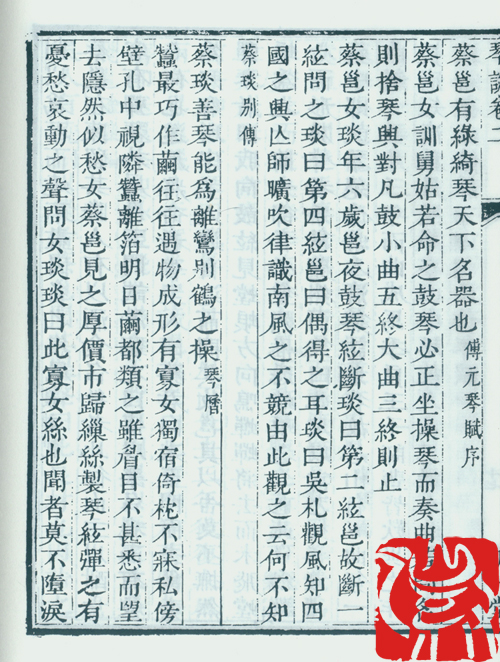 蔡邕有綠綺琴天下名器也傅元琴賦序
蔡邕女訓舅姑若命之鼓琴必正坐操琴而奏曲
則捨琴興對凡鼓小曲五終大曲三終則止
蔡邕女琰年六歲邕夜鼓琴絃斷琰曰第二絃邕故斷一
絃問之琰曰第四絃邕曰偶得之耳琰曰吳札觀風知四
國之興亾師曠吹律識南風之不競由此觀之云何不知
蔡琰別傳
蔡琰善琴能爲離鸞別鶴之操琴曆
蠶最巧作繭往往遇物成形有寡女獨宿倚枕不寐私傍
壁孔中視隣蠶離箔明日繭都類之雖眉目不甚悉而望
去隱然似愁女蔡邕見之厚價市歸繅絲製琴絃彈之有
憂愁哀動之聲問女琰琰曰此寡女絲也聞者莫不墮淚